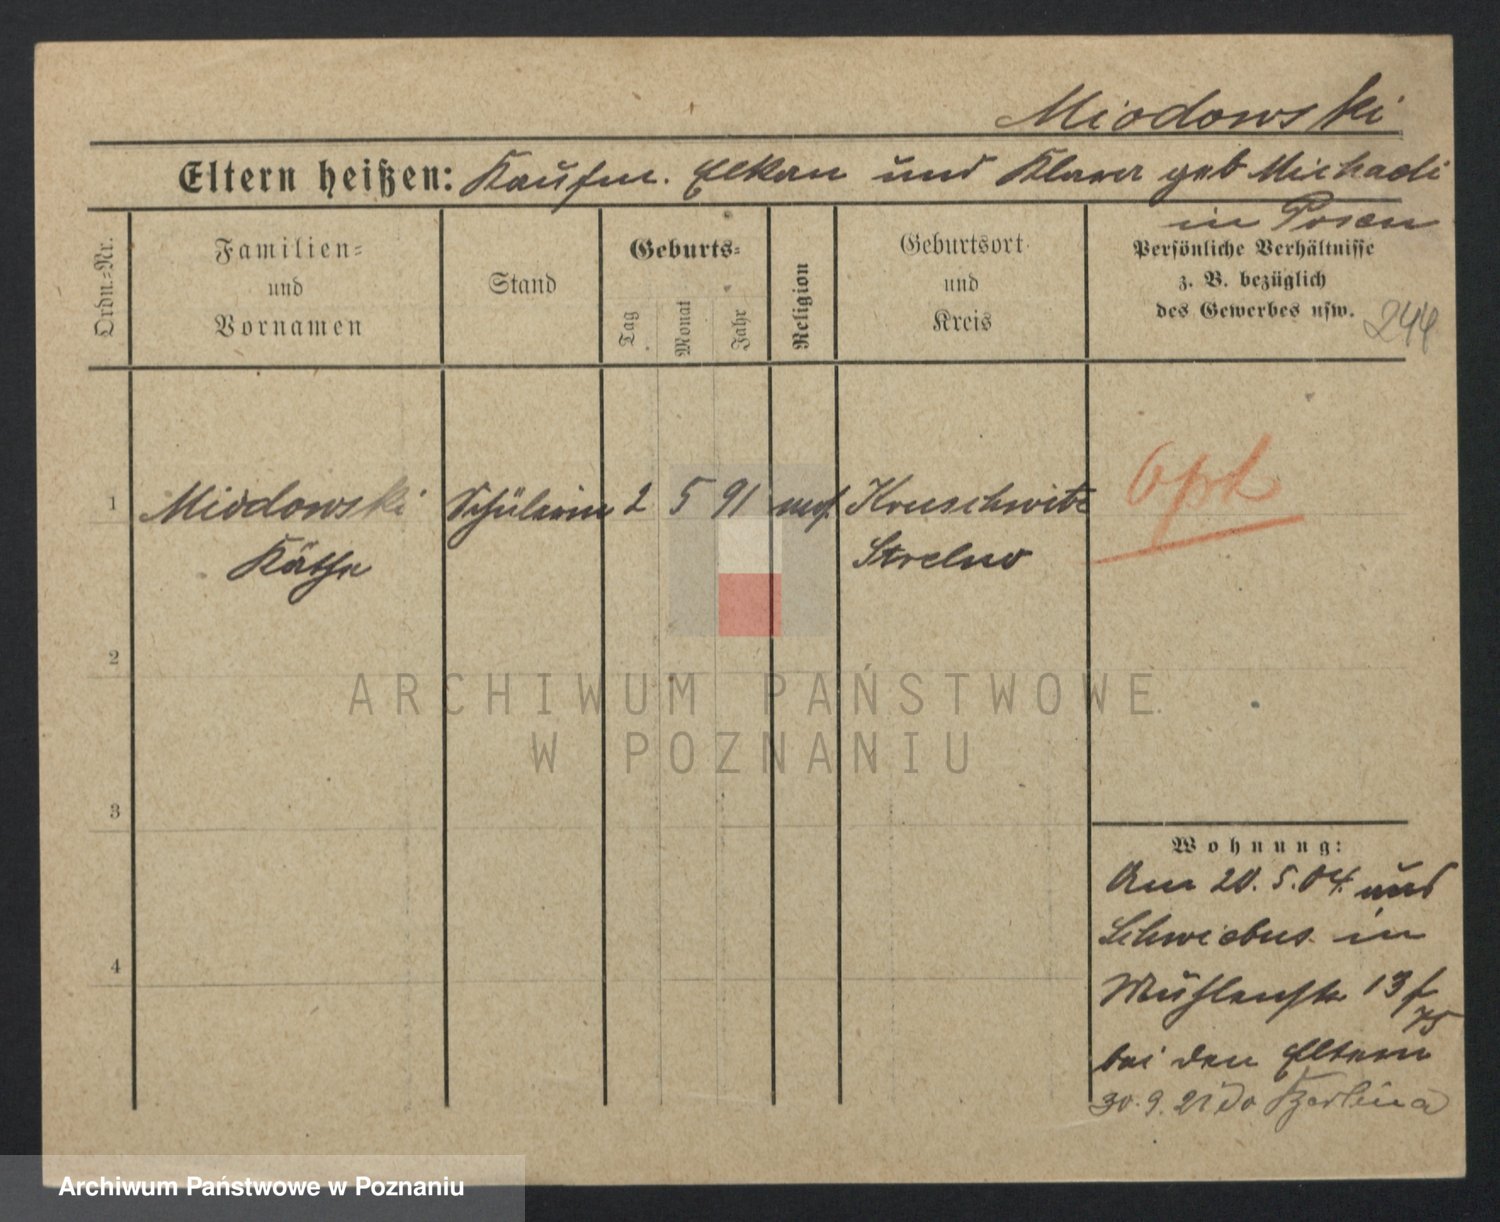 Miodowski
Eltern heißen: Kaufm. Elkan und Klara geb Michaeli
in Posen
Ordn.-Nr.
Familien- und Vornamen
Stand
Geburts-
Tag
Monat
Jahr
Religion
Geburtsort und Kreis
Persönliche Verhältnisse
z. B. bezüglich
des Gewerbes usw.
244
1 Miodowski Schülerin 2 5 91 mos. Kruschwitz
Käthe Strelno
Opt
2
3
4
Wohnung:
Am 20.5.04. aus
Schwiebus in
Mühlenstr 13
75
bei den Eltern
30.9.21 do Berlina
ARCHIWUM PAŃSTWOWE
W POZNANIU
Archiwum Państwowe w Poznaniu